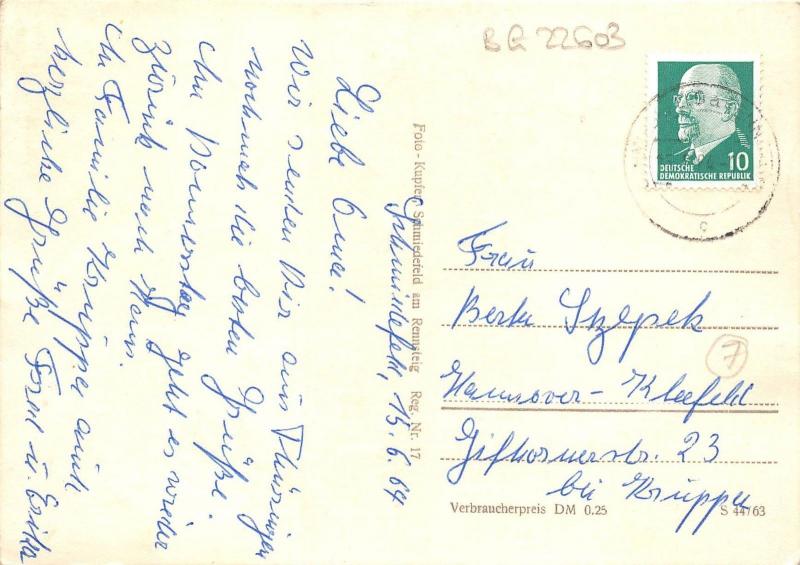 BG 22603
Schmiedefeld, 15.6.64
Liebe Oma!
Wir senden Dir aus Thüringen
nochmals die besten Grüße.
Am Donnerstag geht es wieder
zurück nach Haus.
An Familie Krüppe auch
herzliche Grüße
u. Erika
Foto - Kupfer, Schmiedefeld am Rennsteig Reg. Nr. 17
10
DEUTSCHE
DEMOKRATISCHE REPUBLIK
c
Frau
Berta Szepek
7
Hannover - Kleefeld
Gifhornerstr. 23
bei Krüppe
Verbraucherpreis DM 0.25 S 44/63